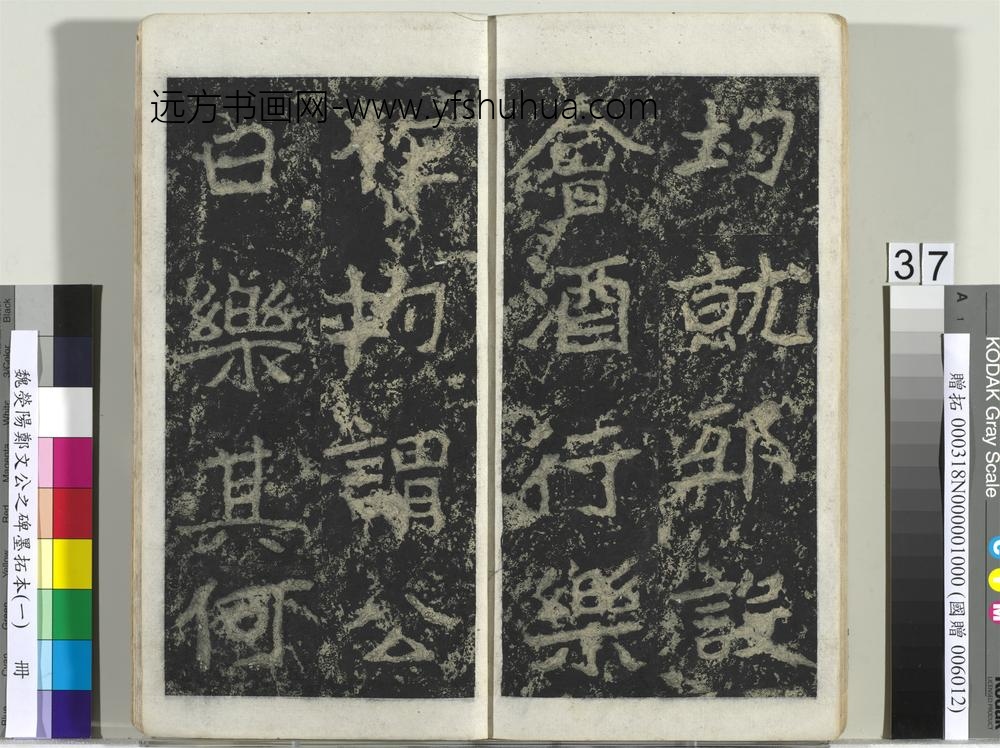 远方书画网-www.yfshuhua.com
均就邪設
會酒行樂
作均謂公
日樂其何
37
魏滎陽鄭文公之碑墨拓本(一) 冊
贈拓 000318N000001000 (國贈 006012)
KODAK Gray Scale
A 1
C
Y
M
Black
3/Color
White
Magenta
Red
Yellow
Green
Cyan
Blue